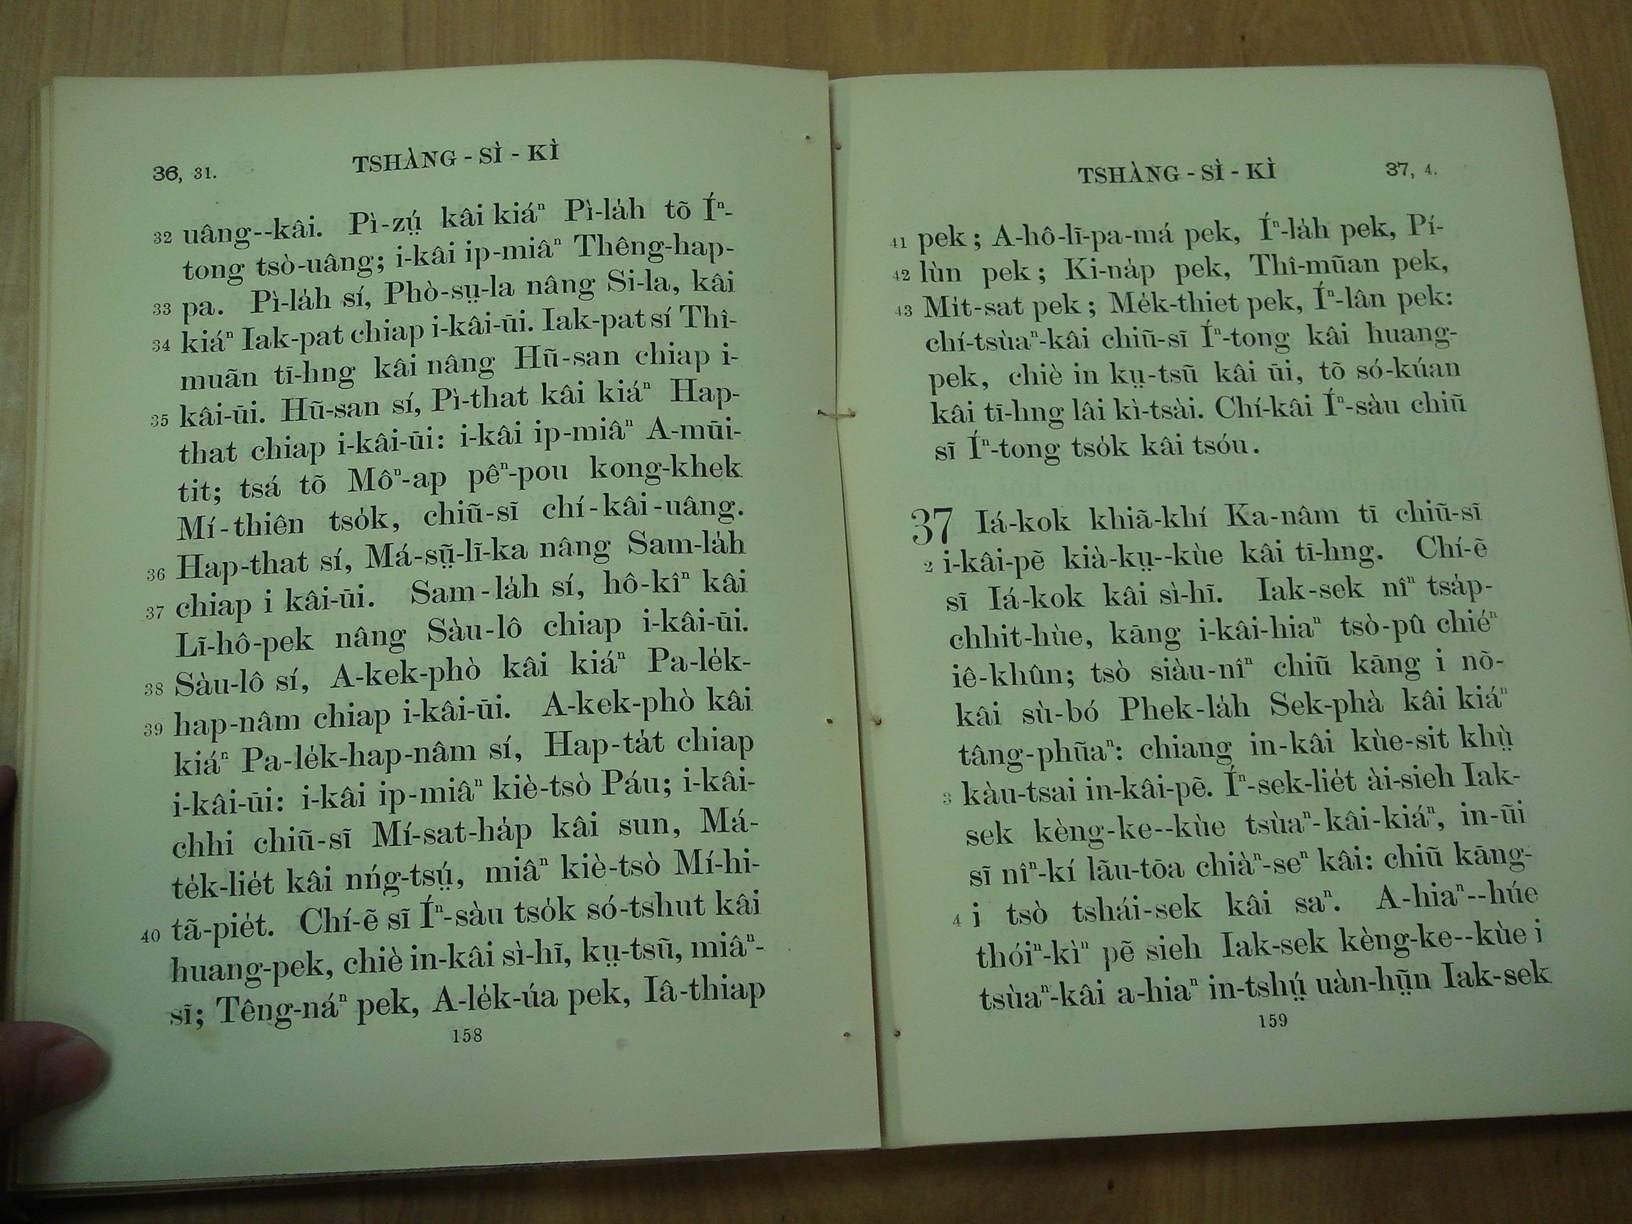 36, 31.
TSHÀNG-SÌ-KÌ
32 uâng--kâi. Pì-zṳ́ kâi kiáⁿ Pì-la̍h tõ Íⁿ-
tong tsò-uâng; i-kâi ip-miâⁿ Thêng-hap-
33 pa. Pì-la̍h sí, Phò-sṳ-la nâng Si-la, kâi
34 kiáⁿ Iak-pat chiap i-kâi-ūi. Iak-pat sí Thî-
muãn tī-hng kâi nâng Hũ-san chiap i-
35 kâi-ūi. Hũ-san sí, Pì-that kâi kiáⁿ Hap-
that chiap i-kâi-ūi: i-kâi ip-miâⁿ A-mūi-
tit; tsá tõ Môⁿ-ap pêⁿ-pou kong-khek
Mí-thiên tso̍k, chiũ-sĩ chí-kâi-uâng.
36 Hap-that sí, Má-sṳ̃-lī-ka nâng Sam-la̍h
37 chiap i kâi-ūi. Sam-la̍h sí, hô-kîⁿ kâi
Lī-hô-pek nâng Sàu-lô chiap i-kâi-ūi.
38 Sàu-lô sí, A-kek-phò kâi kiáⁿ Pa-le̍k-
39 hap-nâm chiap i-kâi-ūi. A-kek-phò kâi
kiáⁿ Pa-le̍k-hap-nâm sí, Hap-ta̍t chiap
i-kâi-ūi: i-kâi ip-miâⁿ kiè-tsò Páu; i-kâi-
chhi chiũ-sĩ Mí-sat-ha̍p kâi sun, Má-
te̍k-lie̍t kâi nńg-tsṳ́, miâⁿ kiè-tsò Mí-hi-
40 tã-pie̍t. Chí-ẽ sĩ Íⁿ-sàu tso̍k só-tshut kâi
huang-pek, chiè in-kâi sì-hĩ, kṳ-tsũ, miâⁿ-
sĩ; Têng-náⁿ pek, A-le̍k-úa pek, Iâ-thiap
158
TSHÀNG-SÌ-KÌ
37, 4.
41 pek; A-hô-lī-pa-má pek, Íⁿ-la̍h pek, Pí-
42 lùn pek; Ki-na̍p pek, Thî-mũan pek,
43 Mi̍t-sat pek; Me̍k-thiet pek, Íⁿ-lân pek:
chí-tsùaⁿ-kâi chiũ-sĩ Íⁿ-tong kâi huang-
pek, chiè in kṳ-tsũ kâi ūi, tõ só-kúan
kâi tī-hng lâi kì-tsài. Chí-kâi Íⁿ-sàu chiũ
sĩ Íⁿ-tong tso̍k kâi tsóu.
37 Iá-kok khiã-khí Ka-nâm tī chiũ-sĩ
2 i-kâi-pẽ kià-kṳ--kùe kâi tī-hng. Chí-ẽ
sĩ Iá-kok kâi sì-hĩ. Iak-sek nîⁿ tsa̍p-
chhit-hùe, kāng i-kâi-hiaⁿ tsò-pû chiéⁿ
iê-khûn; tsò siàu-nîⁿ chiũ kāng i nõ-
kâi sù-bó Phek-la̍h Sek-phà kâi kiáⁿ
tâng-phũaⁿ: chiang in-kâi kùe-sit khṳ̀
3 kàu-tsai in-kâi-pẽ. Íⁿ-sek-lie̍t ài-sieh Iak-
sek kèng-ke--kùe tsùaⁿ-kâi-kiáⁿ, in-ũi
sĩ nîⁿ-kí lãu-tōa chiàⁿ-seⁿ kâi: chiũ kāng-
4 i tsò tshái-sek kâi saⁿ. A-hiaⁿ--húe
thóiⁿ-kìⁿ pẽ sieh Iak-sek kèng-ke--kùe i
tsùaⁿ-kâi a-hiaⁿ in-tshṳ́ uàn-hṳ̃n Iak-sek
159